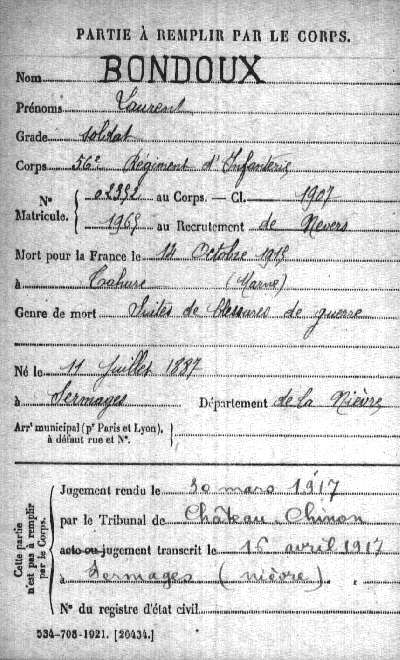 PARTIE À REMPLIR PAR LE CORPS.
Nom BONDOUX
Prénoms Laurent
Grade soldat
Corps 56e Régiment d'Infanterie
N° Matricule. { 02392 au Corps. — Cl. 1907
1965 au Recrutement de Nevers
Mort pour la France le 12 Octobre 1915
à Tahure (Marne)
Genre de mort Suites de blessures de guerre
Né le 11 Juillet 1887
à Sermages Département de la Nièvre
Arrt municipal (pr Paris et Lyon), à défaut rue et N°.
Cette partie n'est pas à remplir par le Corps.
Jugement rendu le 30 mars 1917
par le Tribunal de Château-Chinon
acte ou jugement transcrit le 15 avril 1917
à Sermages (nièvre)
N° du registre d'état civil
534-708-1921. [26434.]